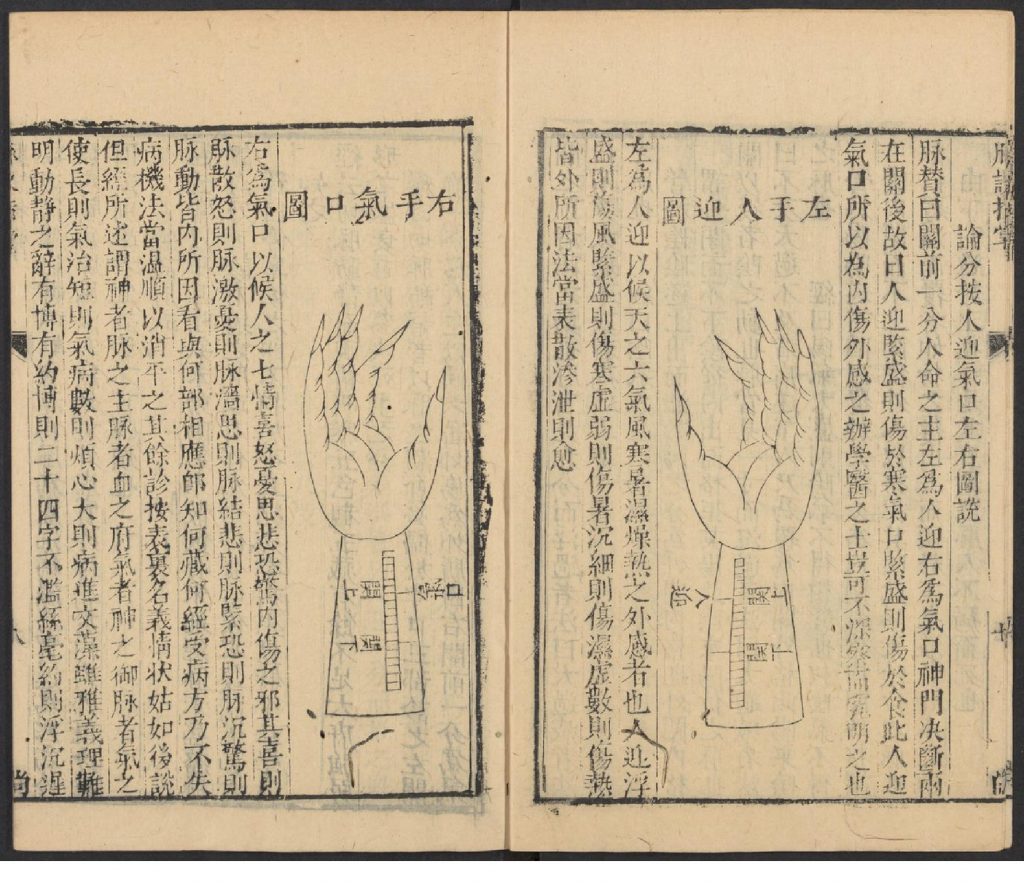 論分按人迎氣口左右圖說
脉賛曰關前一分人命之主左為人迎右為氣口神門决斷兩
在關後故曰人迎緊盛則傷於寒氣口緊盛則傷於食此人迎
氣口所以為內傷外感之辦學醫之士豈可不深察而究明之也
左手人迎圖
人迎
上關
下關
左為人迎以候天之六氣風寒暑濕燥熱之外感者也人迎浮
盛則傷風緊盛則傷寒虛弱則傷暑沉細則傷濕虛數則傷熱
皆外所因法當表散滲泄則愈
右手氣口圖
氣口
上關
下關
右為氣口以候人之七情喜怒憂思悲恐驚內傷之邪其喜則
脉散怒則脉激憂則脉濇思則脉結悲則脉緊恐則脉沉驚則
脉動皆內所因看與何部相應卽知何藏何經受病方乃不失
病機法當温順以消平之其餘診按表裏名義情狀姑如後說
但經所述謂神者脉之主脉者血之府氣者神之御脉者氣之
使長則氣治短則氣病數則煩心大則病進文藻雖雅義理難
明動靜之辭有博有約博則二十四字不濫絲毫約則浮沉遲